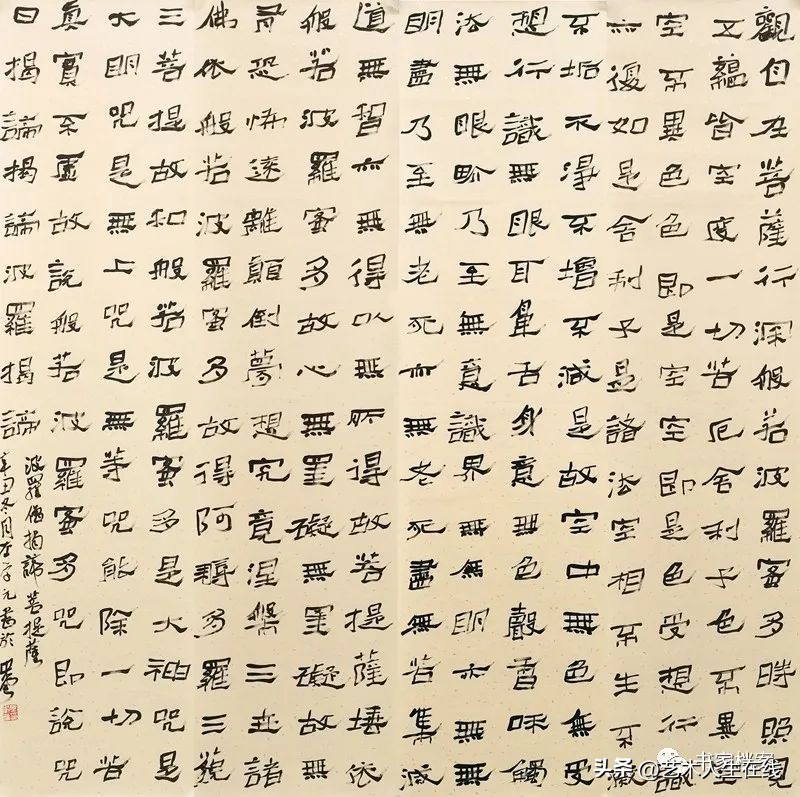 觀自在菩薩行深般若波羅蜜多時照見
五蘊皆空度一切苦厄舍利子色不異空
空不異色色即是空空即是色受想行識
亦復如是舍利子是諸法空相不生不滅
不垢不淨不增不減是故空中無色無受
想行識無眼耳鼻舌身意無色聲香味觸
法無眼界乃至無意識界無無明亦無無
明盡乃至無老死亦無老死盡無苦集滅
道無智亦無得以無所得故菩提薩埵依
般若波羅蜜多故心無罣礙無罣礙故無
有恐怖遠離顛倒夢想究竟涅槃三世諸
佛依般若波羅蜜多故得阿耨多羅三藐
三菩提故知般若波羅蜜多是大神咒是
大明咒是無上咒是無等咒能除一切苦
真實不虛故說般若波羅蜜多咒即說咒
曰揭諦揭諦波羅揭諦
波羅僧揭諦菩提薩
辛丑冬月子元書於
书家档案
头条 @艺术人生在线